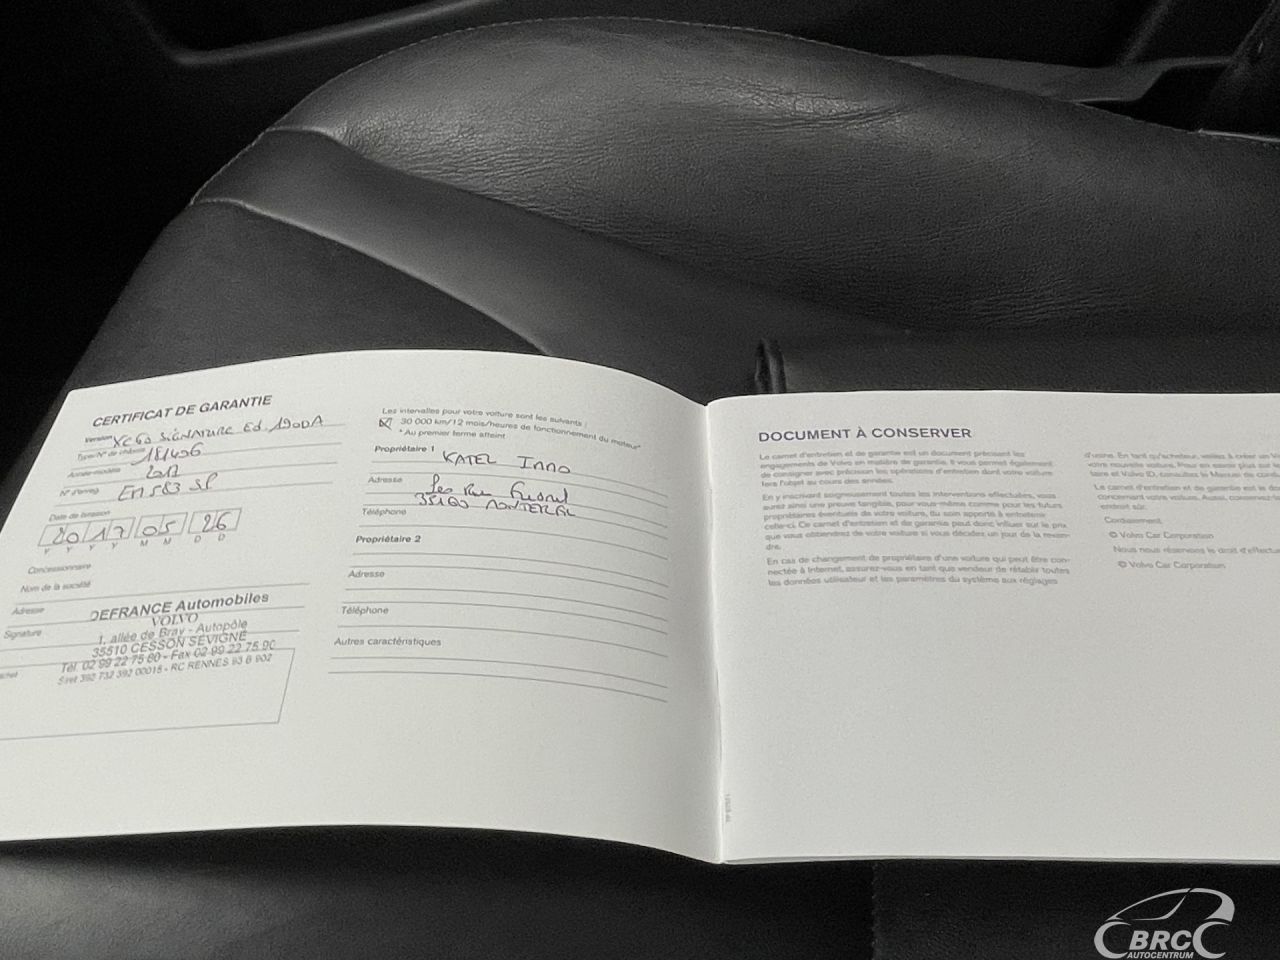 CERTIFICAT DE GARANTIE
Version XC60 SIGNATURE Ed. 190DA
Type/N° de châssis 181406
Année-modèle 2017
N° d'enreg. EN 583 SP
Date de livraison
2017 05 26
Y Y Y Y M M D D
Concessionnaire
Nom de la société
Adresse
DEFRANCE Automobiles
VOLVO
Signature
1, allée de Bray - Autopôle
35510 CESSON SÉVIGNÉ
Tél. 02 99 22 75 80 - Fax 02 99 22 75 90
Siret 392 732 392 00015 - RC RENNES 93 B 902
Les intervalles pour votre voiture sont les suivants :
30 000 km/12 mois/heures de fonctionnement du moteur*
* Au premier terme atteint
Propriétaire 1 KATEL Inno
Adresse
35160
Téléphone
Propriétaire 2
Adresse
Téléphone
Autres caractéristiques
DOCUMENT À CONSERVER
Le carnet d'entretien et de garantie est un document précisant les
engagements de Volvo en matière de garantie. Il vous permet également
de consigner avec précision les opérations d'entretien dont votre voiture
fera l'objet au cours des années.
En y inscrivant soigneusement toutes les interventions effectuées, vous
aurez ainsi une preuve tangible, pour vous-même comme pour les futurs
propriétaires éventuels de votre voiture, du soin apporté à entretenir
celle-ci. Ce carnet d'entretien et de garantie peut donc influer sur le prix
que vous obtiendrez de votre voiture si vous décidez un jour de la reven-
dre.
En cas de changement de propriétaire d'une voiture qui peut être con-
nectée à Internet, assurez-vous en tant que vendeur de rétablir toutes
les données utilisateur et les paramètres du système aux réglages
d'usine. En tant qu'acheteur, veillez à créer un
votre nouvelle voiture. Pour en savoir plus sur
taire et Volvo ID, consultez le Manuel de
Le carnet d'entretien et de garantie est le
concernant votre voiture. Aussi, conservez-
endroit sûr.
Cordialement,
© Volvo Car Corporation
Nous nous réservons le droit
© Volvo Car Corporation
BRC
AUTOCENTRUM